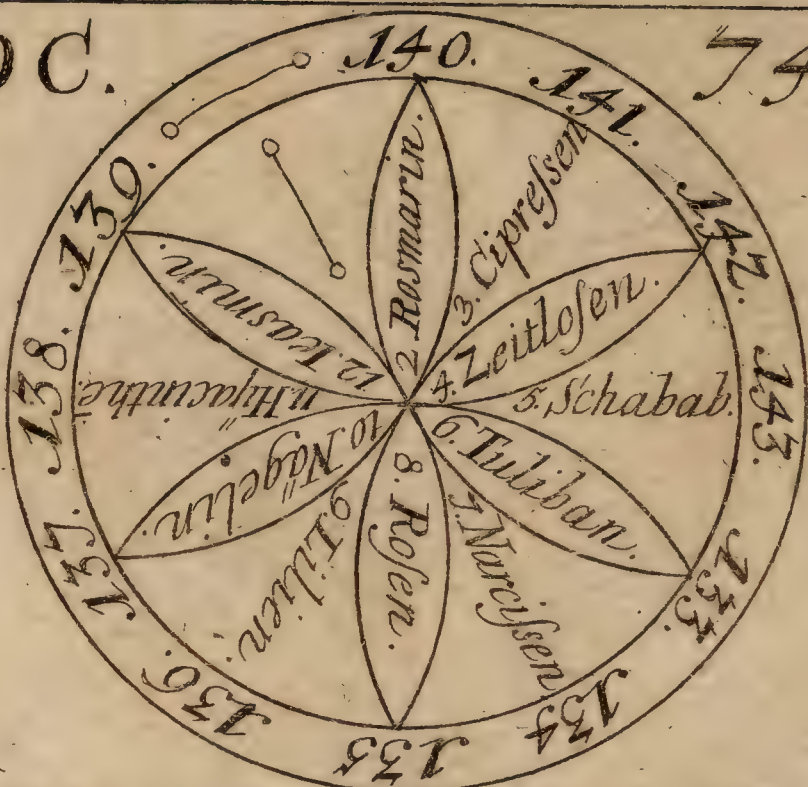 OC.
74
140.
141.
142.
143.
133.
134
135
136.
137.
138.
139.
2 Rosmarin.
3. Cipreſsen
4. Zeitloſen.
5. Schabab.
6. Tuliban.
7. Narciſsen
8. Roſen.
9. Lilien.
10 Nägelin.
11. Hÿacinthe.
12. Ieasmin.